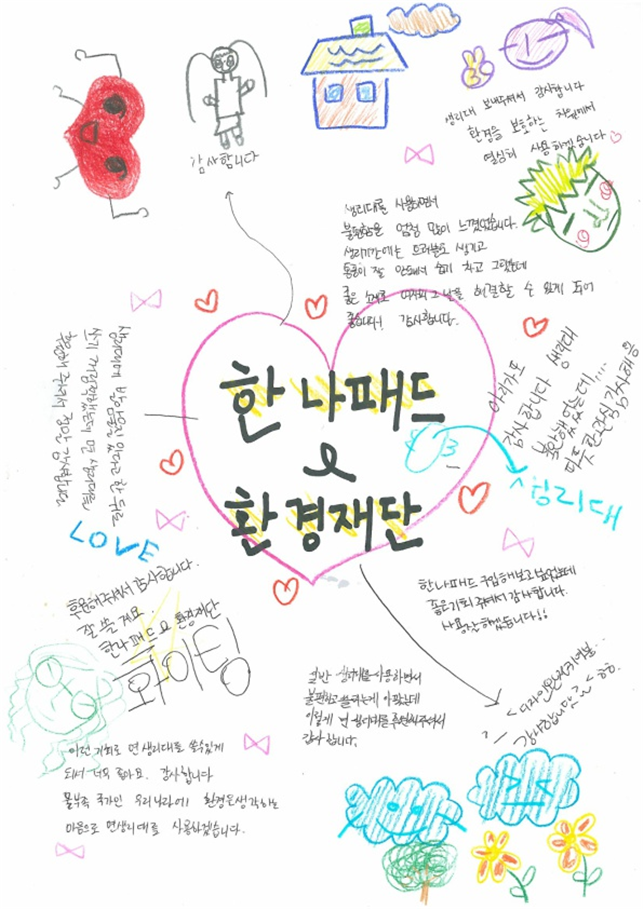 감사합니다
생리대 보내주셔서 감사합니다
환경을 보호하는 차원에서
열심히 사용하겠습니다
생리대를 사용하면서
불편함을 엄청 많이 느꼈었습니다.
생리기간에는 트러블도 생기고
통풍이 잘 안돼서 습기 차고 그랬는데
좋은 소재로 그 날을 해결할 수 있게 되어
좋습니다! 감사합니다.
한나패드
&
환경재단
생리대에 발암물질이 있다고 한 후로
쓰기 걱정했는데 면 생리대를
후원해 주셔서 정말 감사합니다
아리가또
감사합니다 생리대
불안했었는데....
따뜻한 관심 감사해용
생리대
LOVE
한나패드 구입해보고 싶었는데
좋은기회 주셔서 감사합니다.
사용잘하겠습니다!!
후원해주셔서 감사합니다.
잘 쓸게요.
한나패드 & 환경재단
화이팅
일반 생리대를 사용하면서
불편하고 아팠는데
이렇게 면 생리대를 후원해주셔서
감사합니다.
<디자인완전귀여봉..
감사합니당
이런 기회로 면생리대를 쓸수있게
되서 너무 좋아요. 감사합니다
물부족 국가인 우리나라에 환경을생각하는
마음으로 면생리대를 사용하겠습니다.